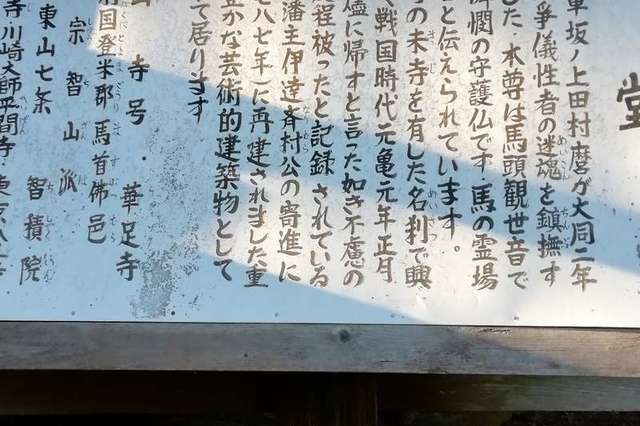 堂
車坂ノ上田村麿が大同二年
争儀性者の迷魂を鎮撫す
した。本尊は馬頭観世音で
の守護仏です馬の霊場
と伝えられています。
の末寺を有した名刹で興
戦国時代元亀元年正月
燼に帰すと言った如き不慮の
程被ったと記録されている
藩主伊達斉村公の寄進に
八七年に再建されました重
かな芸術的建築物として
て居ります
寺号・華足寺
国登米郡馬首佛邑
宗智山派
東山七条 智積院
寺・川崎大師平間寺・